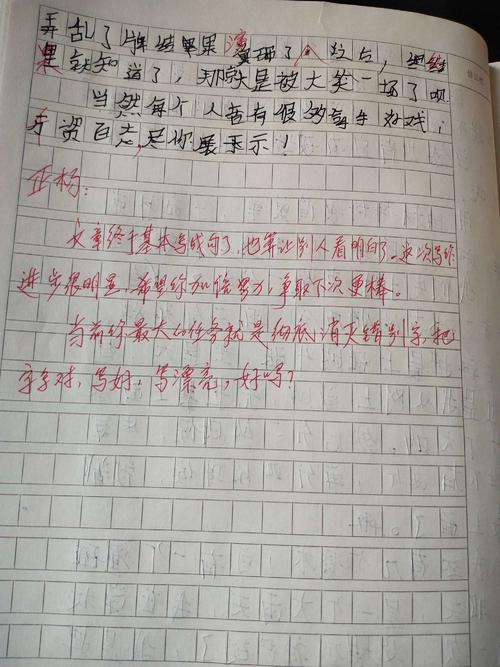 弄乱了牌结果演了人拉，结
果就知道了，那就是被大笑一场了呗
当然每个人都有很多拿手好戏，
手资百老，尽你展示！
正杨：
文章终于基本写成句了，也算让别人看明白了。这次写作
进步很明显，希望你加倍努力，争取下次更棒。
当前你最大的任务就是彻底消灭错别字，把
字写对，写好，写漂亮，好吗？